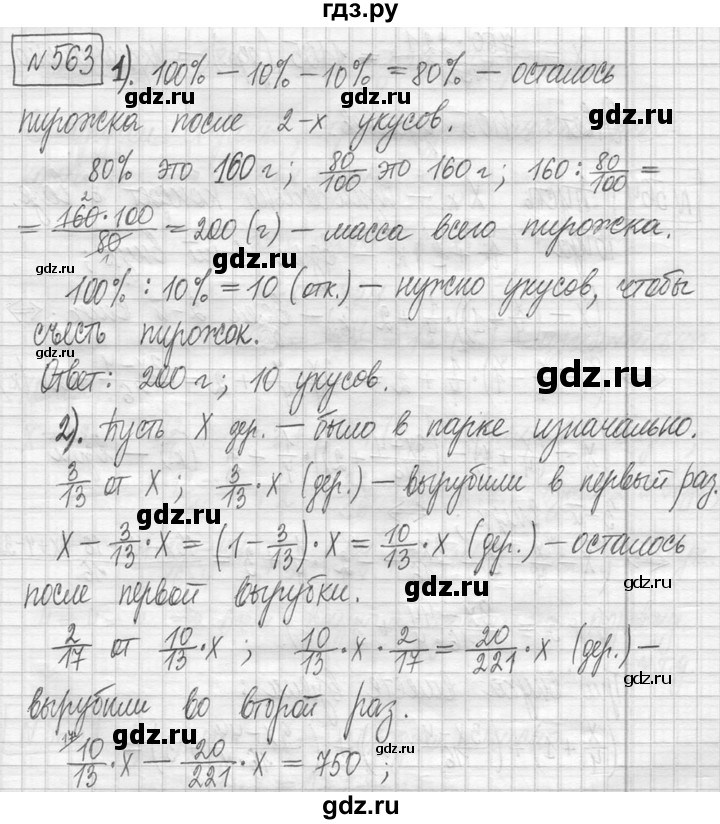 гдз.ру
№563 1). 100% − 10% − 10% = 80% — осталось
gdz.ru gdz.ru
gdz.ru
пирожка после 2-х укусов.
80% это 160 г; 80/100 это 160 г; 160 : 80/100 =
gdz.ru
= 160·100/80 = 200 (г) — масса всего пирожка.
2
1
gdz.ru gdz.ru
100% : 10% = 10 (отк.) — нужно укусов, чтобы
съесть пирожок.
gdz.ru
Ответ: 200 г; 10 укусов.
gdz.ru
2). Пусть X дер. — было в парке изначально.
3/13 от X; 3/13 · X (дер.) — вырубили в первый раз.
gdz.ru gdz.ru
X − 3/13 · X = (1 − 3/13) · X = 10/13 · X (дер.) — осталось
gdz.ru gdz.ru
после первой вырубки.
2/17 от 10/13 · X; 10/13 · X · 2/17 = 20/221 · X (дер.) —
gdz.ru
вырубили во второй раз.
gdz.ru gdz.ru
17
10/13 · X − 20/221 · X = 750 ;
gdz.ru